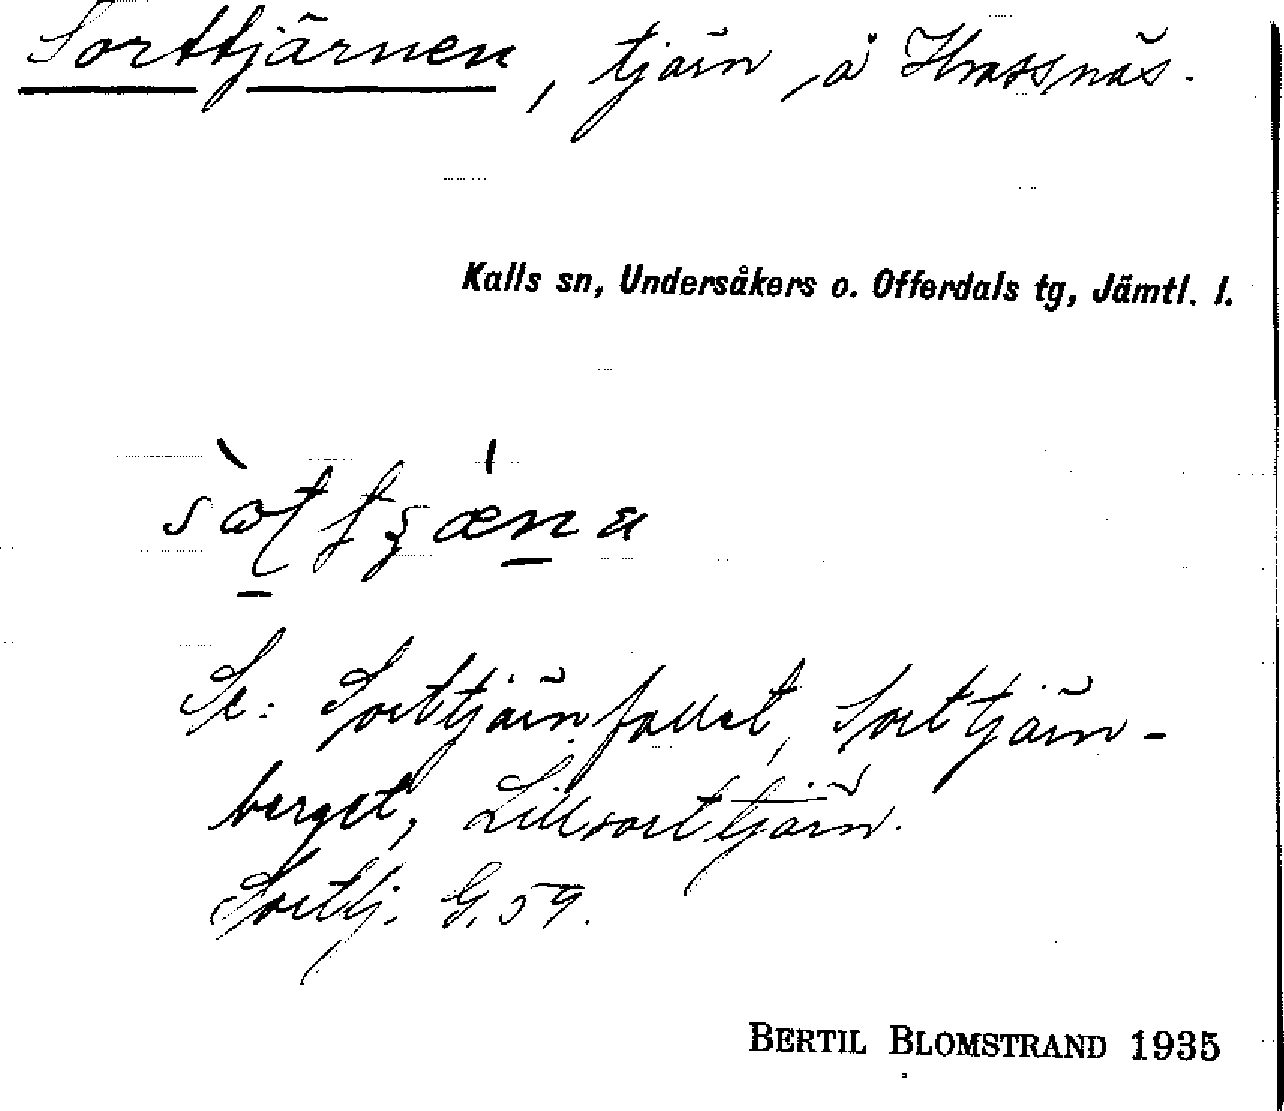 Sorttjärnen, tjärn å Krassnäs.
Kalls sn, Undersåkers o. Offerdals tg, Jämtl. l.
Se: Sorttjärnfallet, Sorttjärn-
berget, Lillsorttjärn.
Sorttj. G. 59.
BERTIL BLOMSTRAND 1935